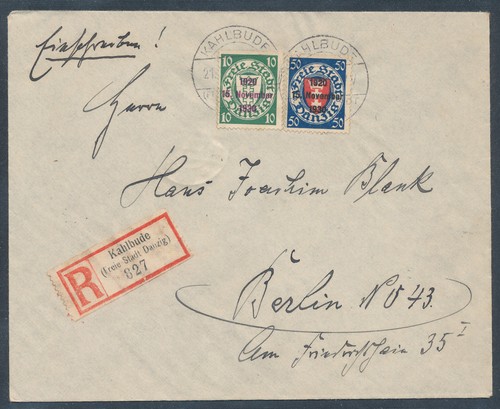 Einschreiben!
KAHLBUDE
KAHLBUDE
21.
10 10
Freie Stadt
1920
15. November
1930
Danzig
10 10
50 50
Freie Stadt
1920
November
1930
Danzig
50 50
Herrn
Hans Joachim Blank
R
Kahlbude
(Freie Stadt Danzig)
827
Berlin NO 43.
Am Friedrichshain 35 I